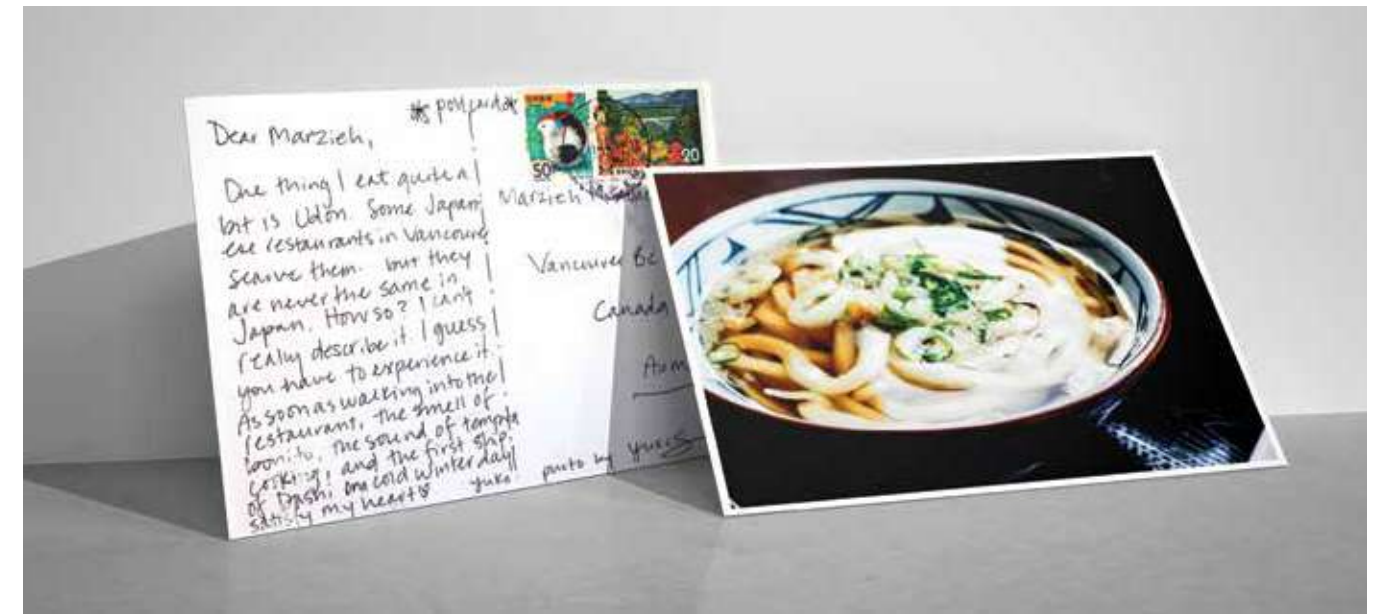 * postcard *
Dear Marzieh,
One thing I eat quite a
bit is Udon. Some Japan
ese restaurants in Vancouver
searve them. but they
are never the same in
Japan. How so? I can't
really describe it. I guess
you have to experience it.
As soon as walking into the
restaurant, the smell of
bonito, the sound of tempura
cooking, and the first ship
of Dashi on a cold winter day
satisfy my heart
yuko
50
20
Marzieh
Vancouver BC
Canada
photo by